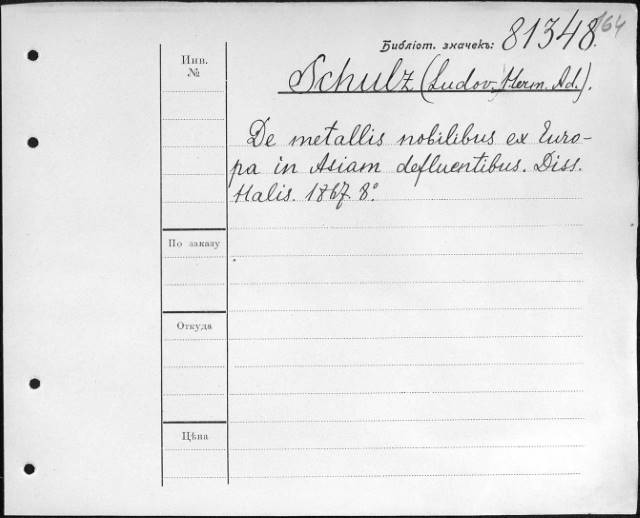 Библіот. значекъ: 81348. 164
Инв.
№
Schulz (Ludov. Herm. Ad.).
De metallis nobilibus ex Euro-
pa in Asiam defluentibus. Diss.
Halis. 1867. 8°.
По заказу
Откуда
Цѣна